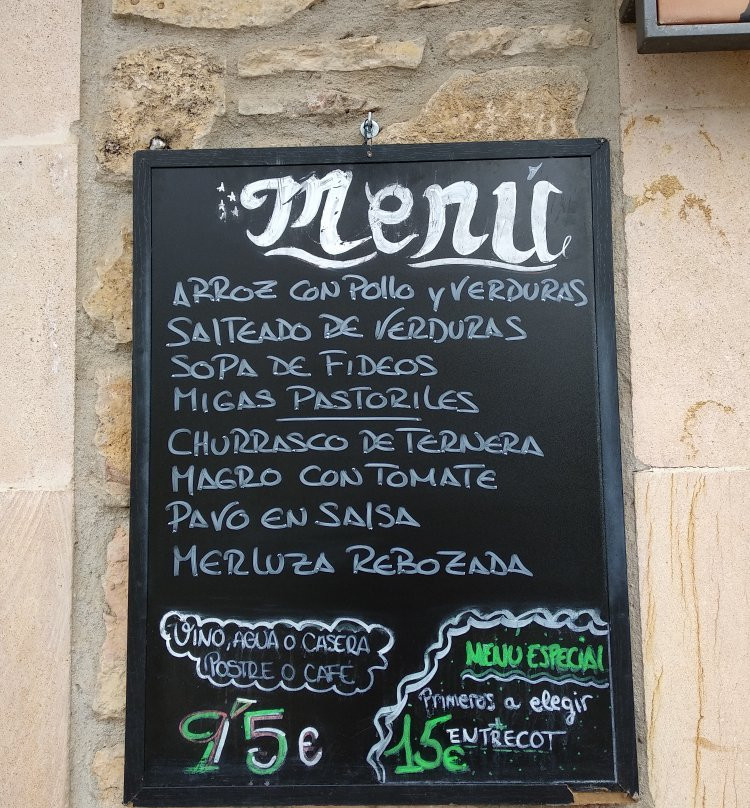 Menú
ARROZ CON POLLO Y VERDURAS
SALTEADO DE VERDURAS
SOPA DE FIDEOS
MIGAS PASTORILES
CHURRASCO DE TERNERA
MAGRO CON TOMATE
PAVO EN SALSA
MERLUZA REBOZADA
VINO, AGUA O CASERA
POSTRE O CAFE
9'5 €
MENÚ ESPECIAL
Primeros a elegir
+
ENTRECOT
15 €